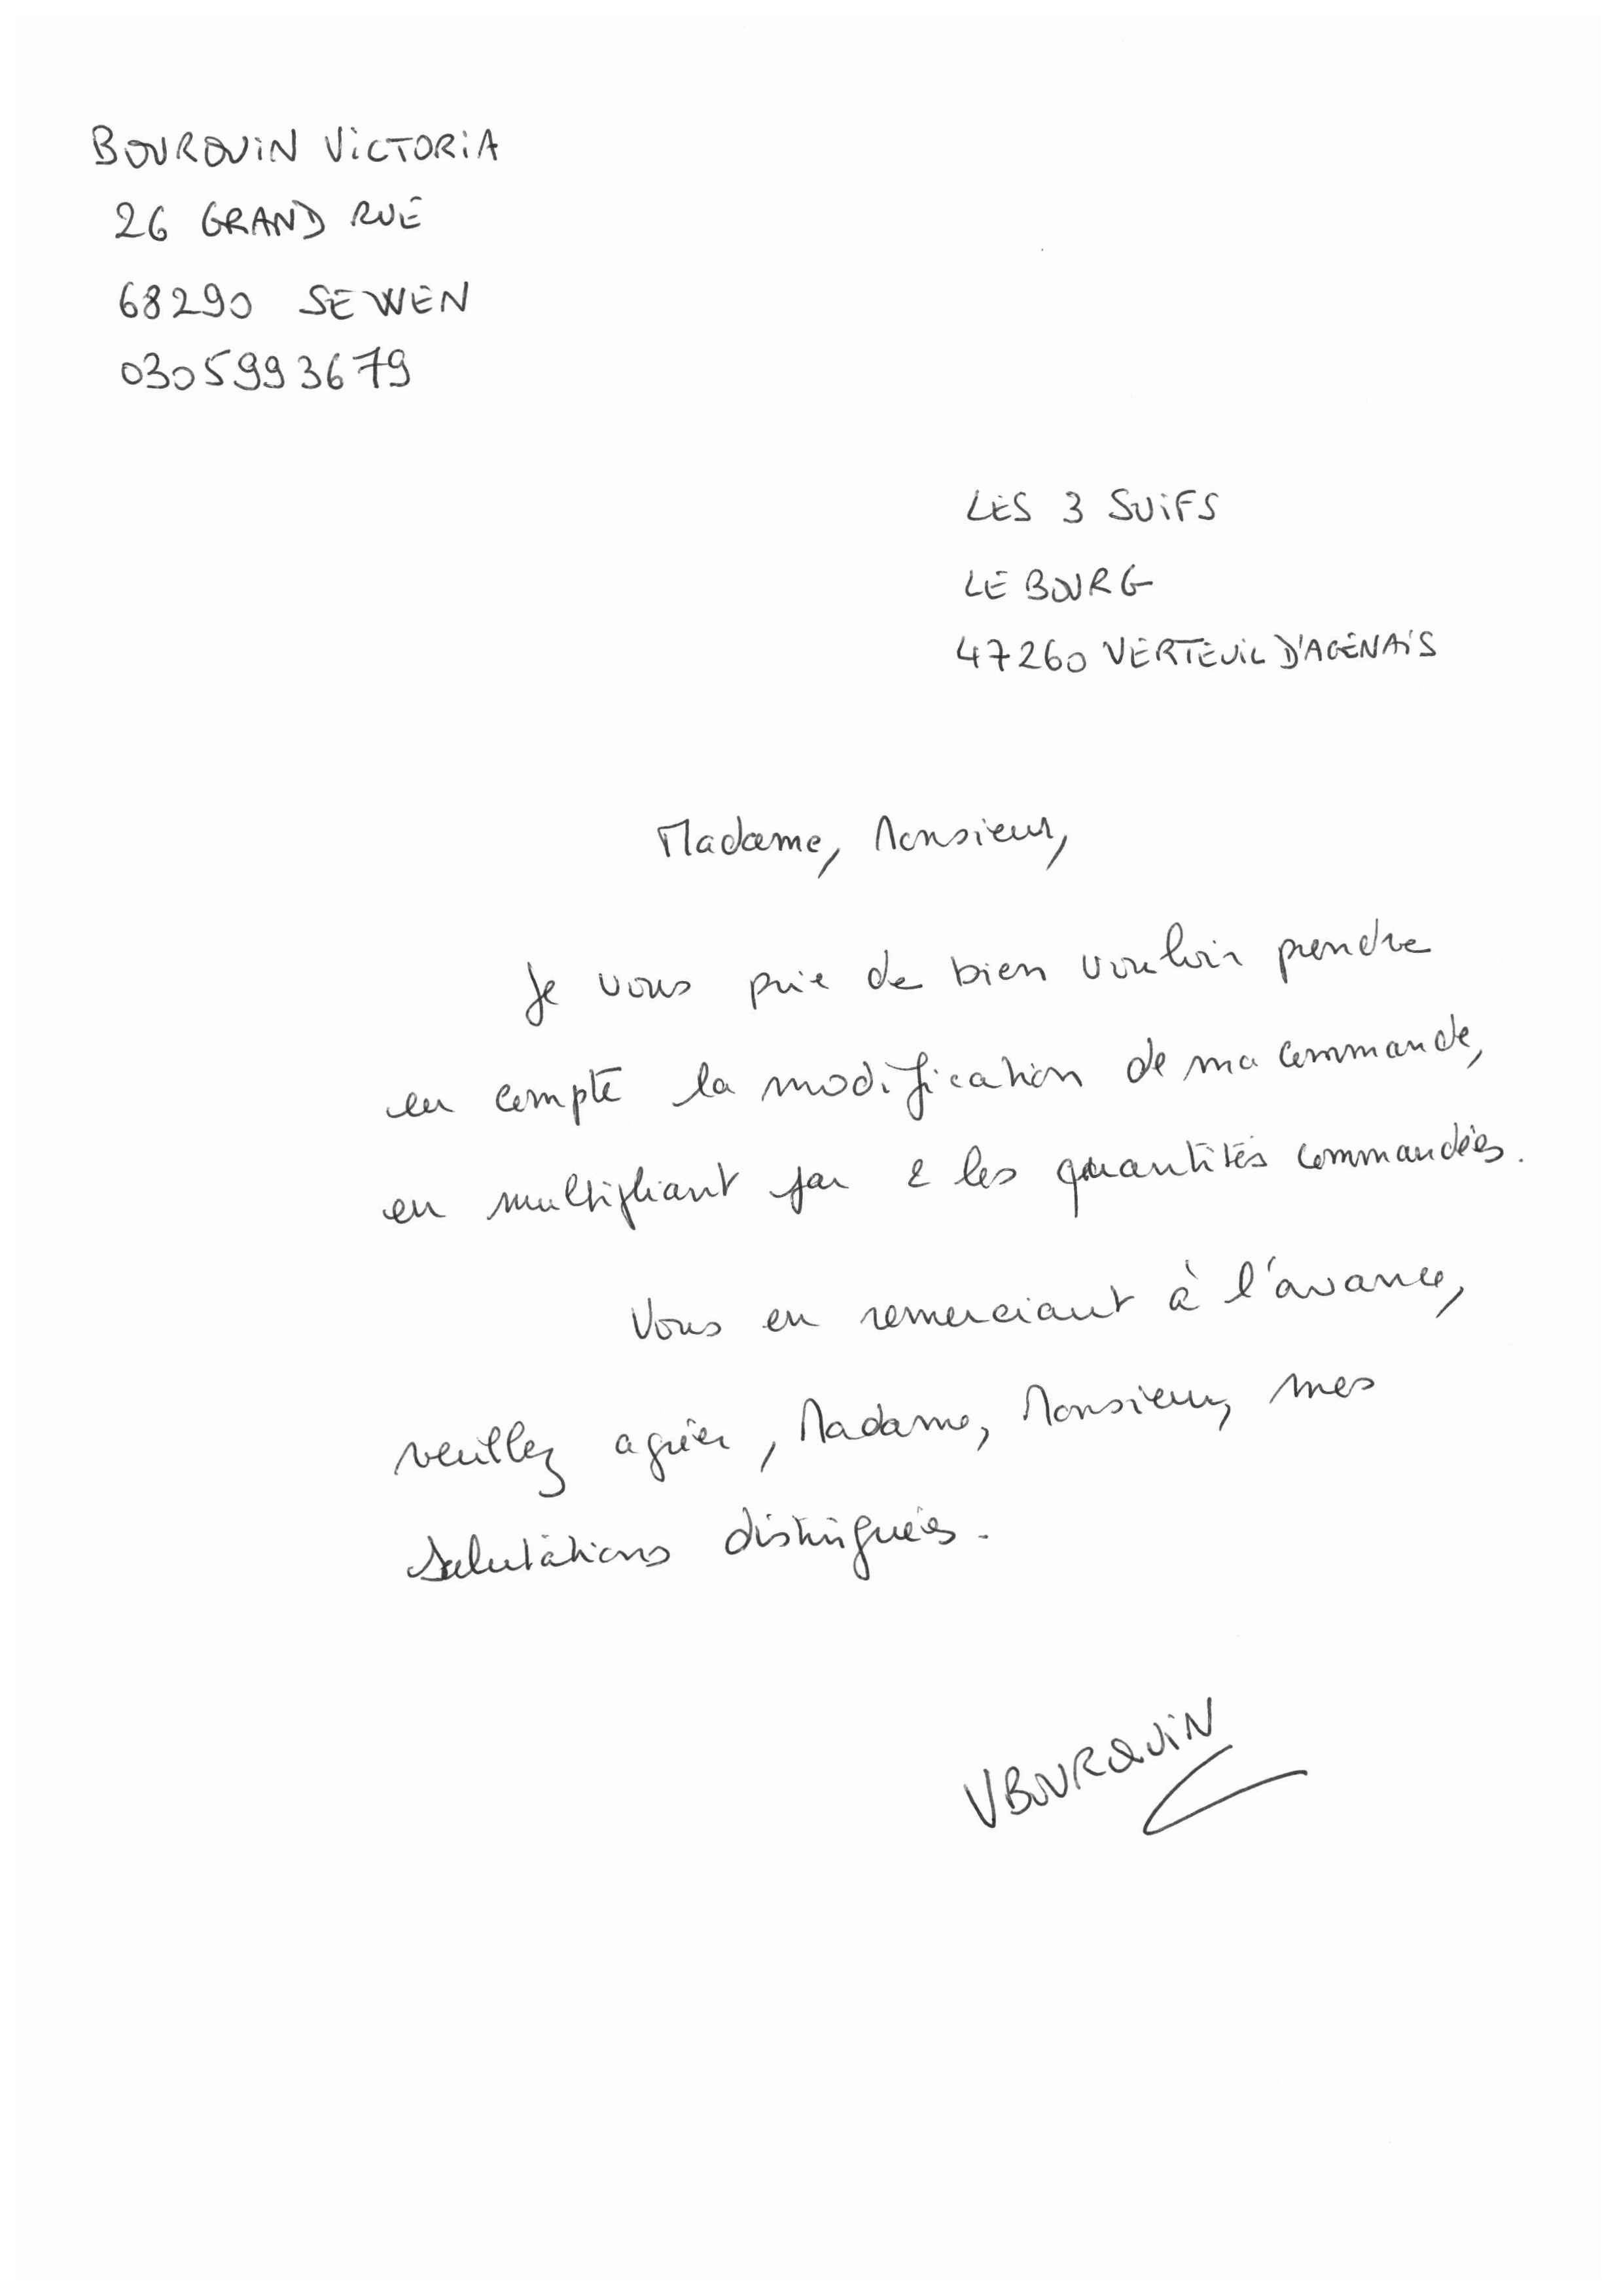 BOURQUIN VICTORIA
26 GRAND RUE
68290 SEWEN
0305993679
LES 3 SUIFS
LE BOURG
47260 VERTEUIL D'AGENAIS
Madame, Monsieur,
Je vous prie de bien vouloir prendre
en compte la modification de ma commande,
en multipliant par 2 les quantités commandées.
Vous en remerciant à l'avance,
veuillez agréer, Madame, Monsieur, mes
salutations distinguées.
VBOURQUIN